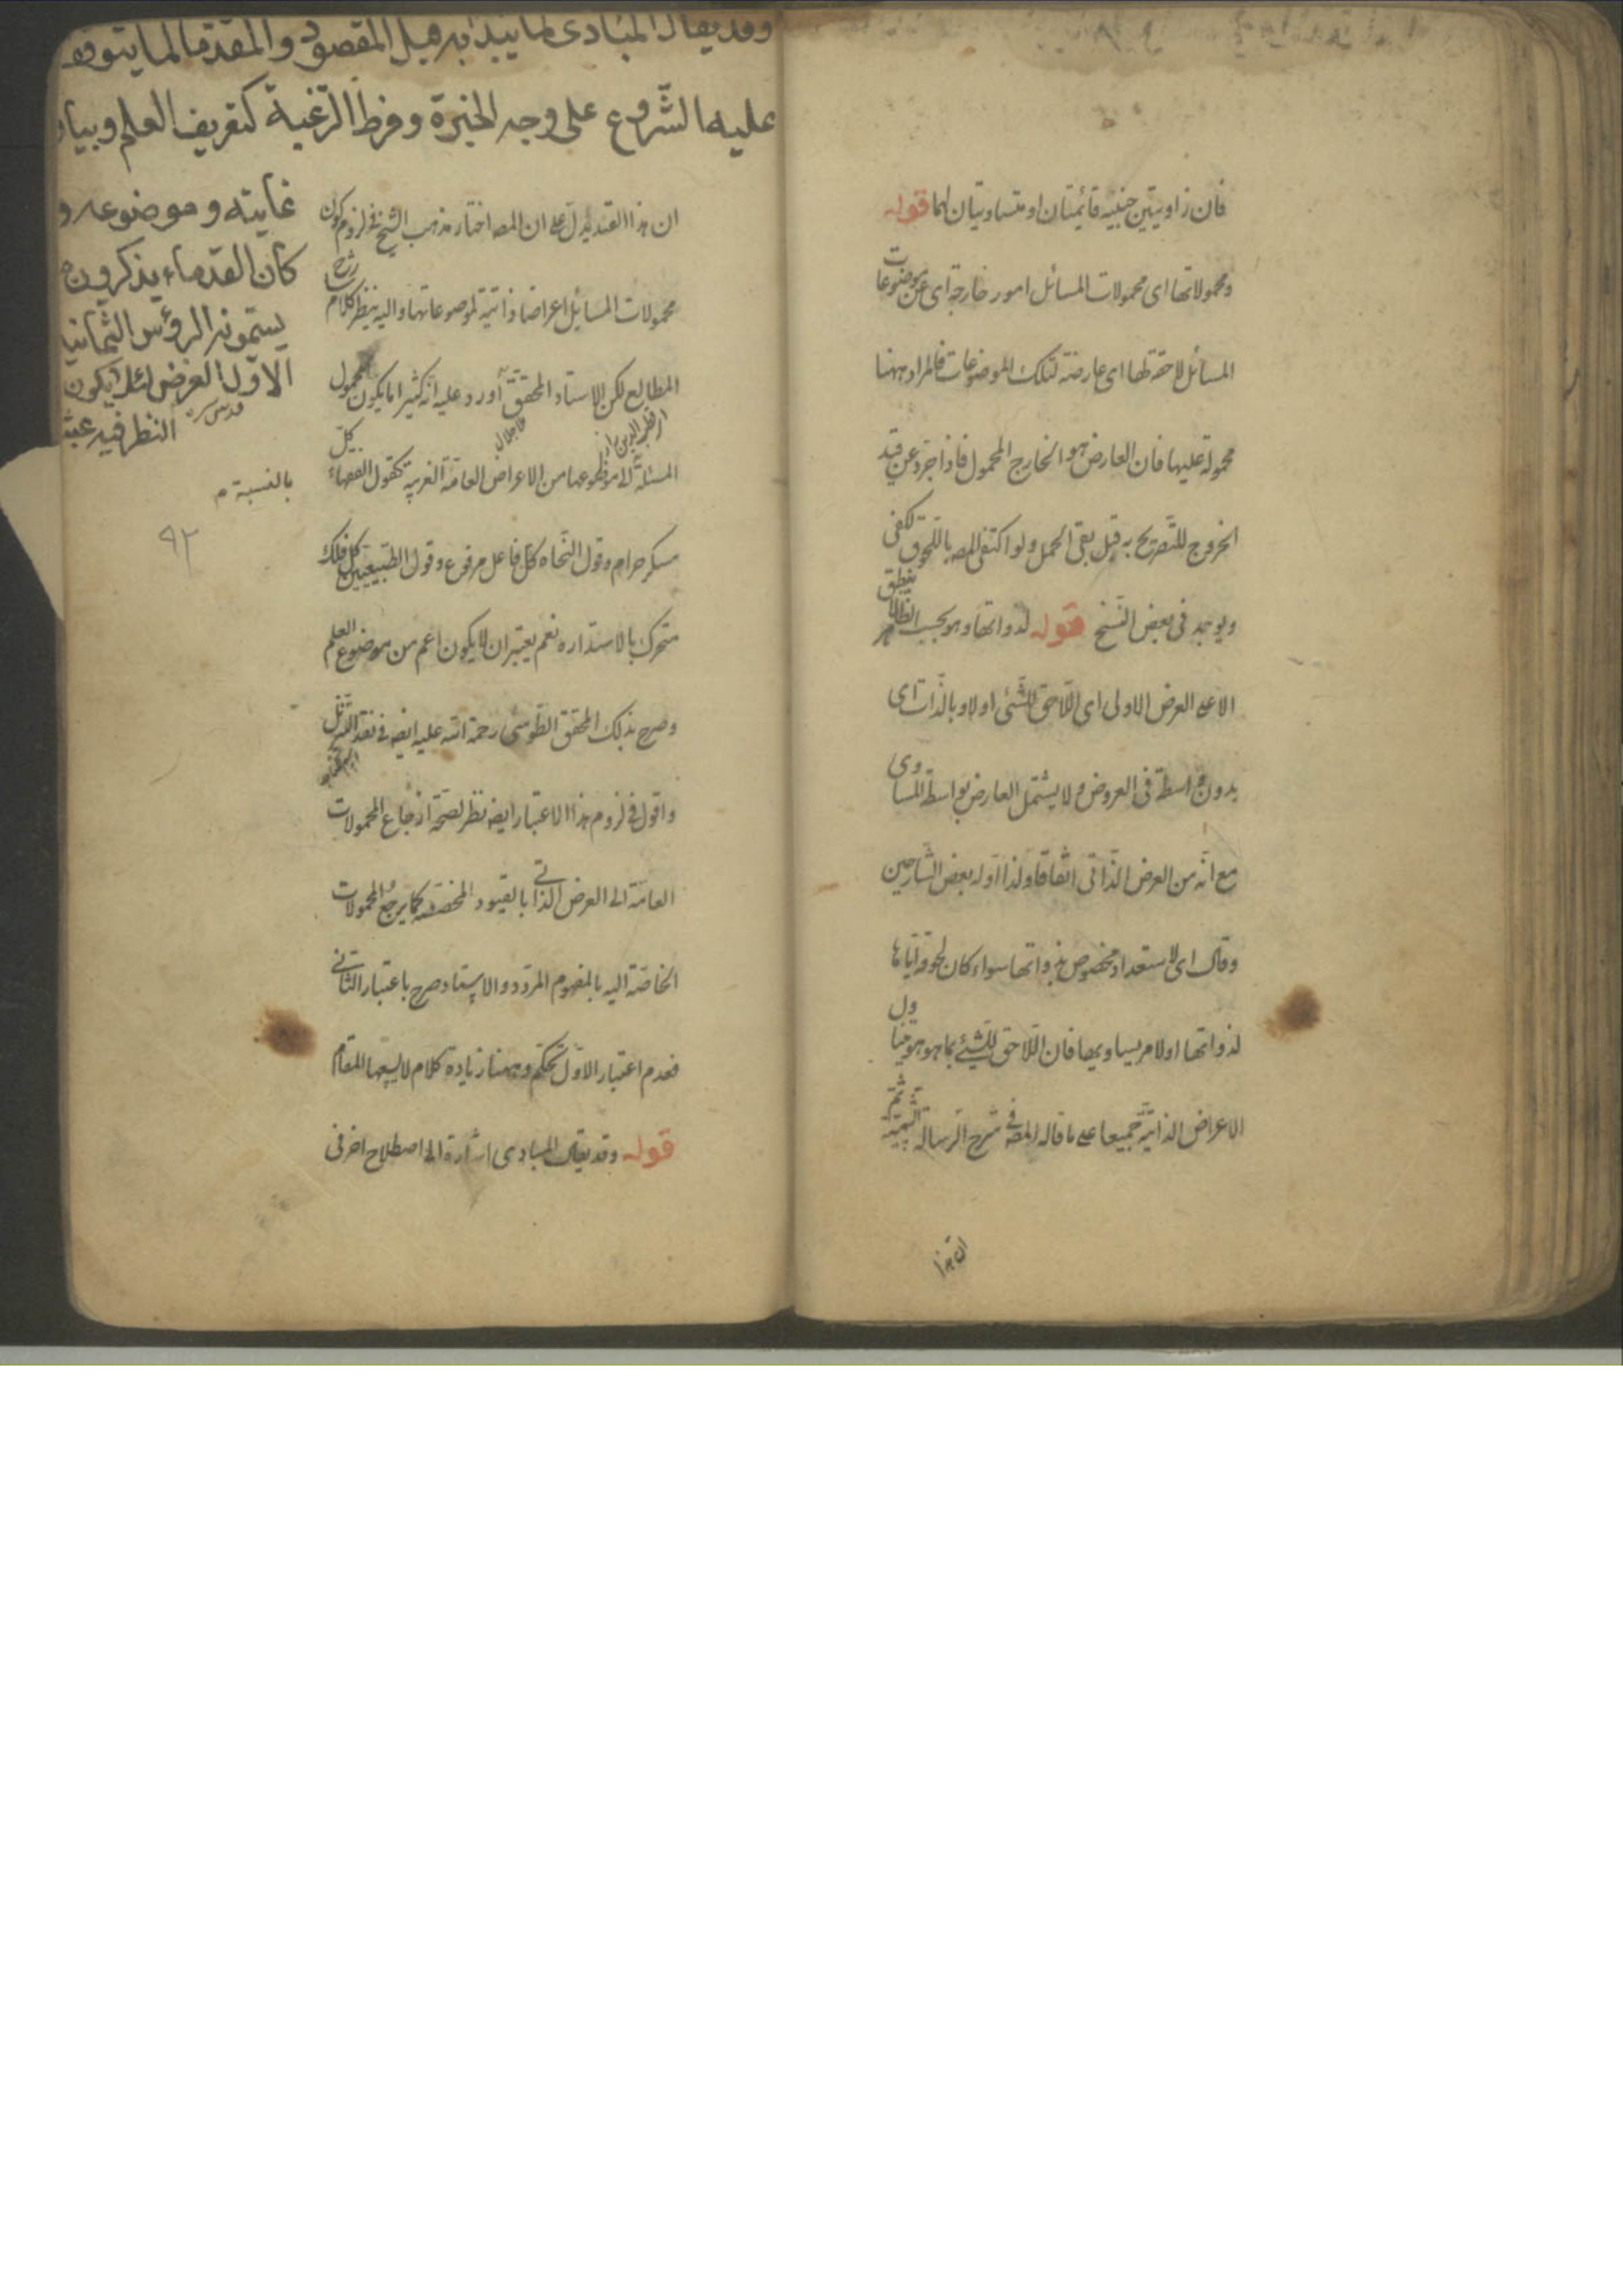 فان زاويتين جنبيه قائمتان او متساويتان لهما قوله
ومحمولاتها اى محمولات المسائل امور خارجة اى عن موضوعات
المسائل لاحقة لها اى عارضة لتلك الموضوعات فالمراد ههنا
محمولة عليها فان العارض هو الخارج المحمول فاذا جرد عن قيد
الخروج للتصريح به قبل بقى الحمل ولو اكتفى المصه باللحوق لكفى
ويوجد فى بعض النسخ قوله لذواتها وهو بحسب الظاهر لا ينطبق
الا على العرض الاولى اى اللاحق للشئ اولا وبالذات اى
بدون واسطة فى العروض ولا يشتمل العارض بواسطة المساوى
مع انه من العرض الذاتى اتفاقا ولذا اوله بعض الشارحين
وقال اى لاستعداد مخصوص بذواتها سواء كان لحوقه اياها
لذواتها او لامر يساويها فان اللاحق للشئ بما هو هو يتناول
الاعراض الذاتية جميعا على ما قاله المصه فى شرح الرسالة الشمسية ثم
ان هذا
وقد يقال المبادى لما يبدأ به قبل المقصود والمقدمات لما يتوقف
عليه الشروع على وجه الخبرة وفرط الرغبة كتعريف العلم وبيان
غايته وموضوعه و
كان القدماء يذكرون
يسمونه الرؤس الثمانية
الاول الغرض لئلا يكون
النظر فيه عبثا
قدس سره
بالنسبة م
٩٢
ان هذا القيد يدل على ان المصه اختار مذهب الشيخ فى لزوم كون
محمولات المسايل اعراضا ذاتية لموضوعاتها واليه ينظر كلام شرح
المطالع لكن الاستاد المحقق آورد عليه انه كثيرا ما يكون محمول
المسئلة لا موضوعها من الاعراض العامة الغريبة كقول الفقهاء كل
مسكر حرام وقول النحاه كل فاعل مرفوع وقول الطبيعيين كل فلك
متحرك بالاستداره نعم يعتبر ان لا يكون اعم من موضوع العلم
وصرح بذلك المحقق الطوسى رحمة الله عليه ايضه فى نقد التنزيل
واقول فى لزوم هذا الاعتبار ايضه نظر لصحة ارجاع المحمولات
العامة الى العرض الذاتى بالقيود المخصصه كما يرجع المحمولات
الخاصة اليه بالمفهوم المردد والاستاد صرح باعتبار الثانى
فعدم اعتبار الاول تحكم وههنا زيادة كلام لا يسعها المقام
قوله وقد يقال المبادى اشارة الى اصطلاح اخر فى